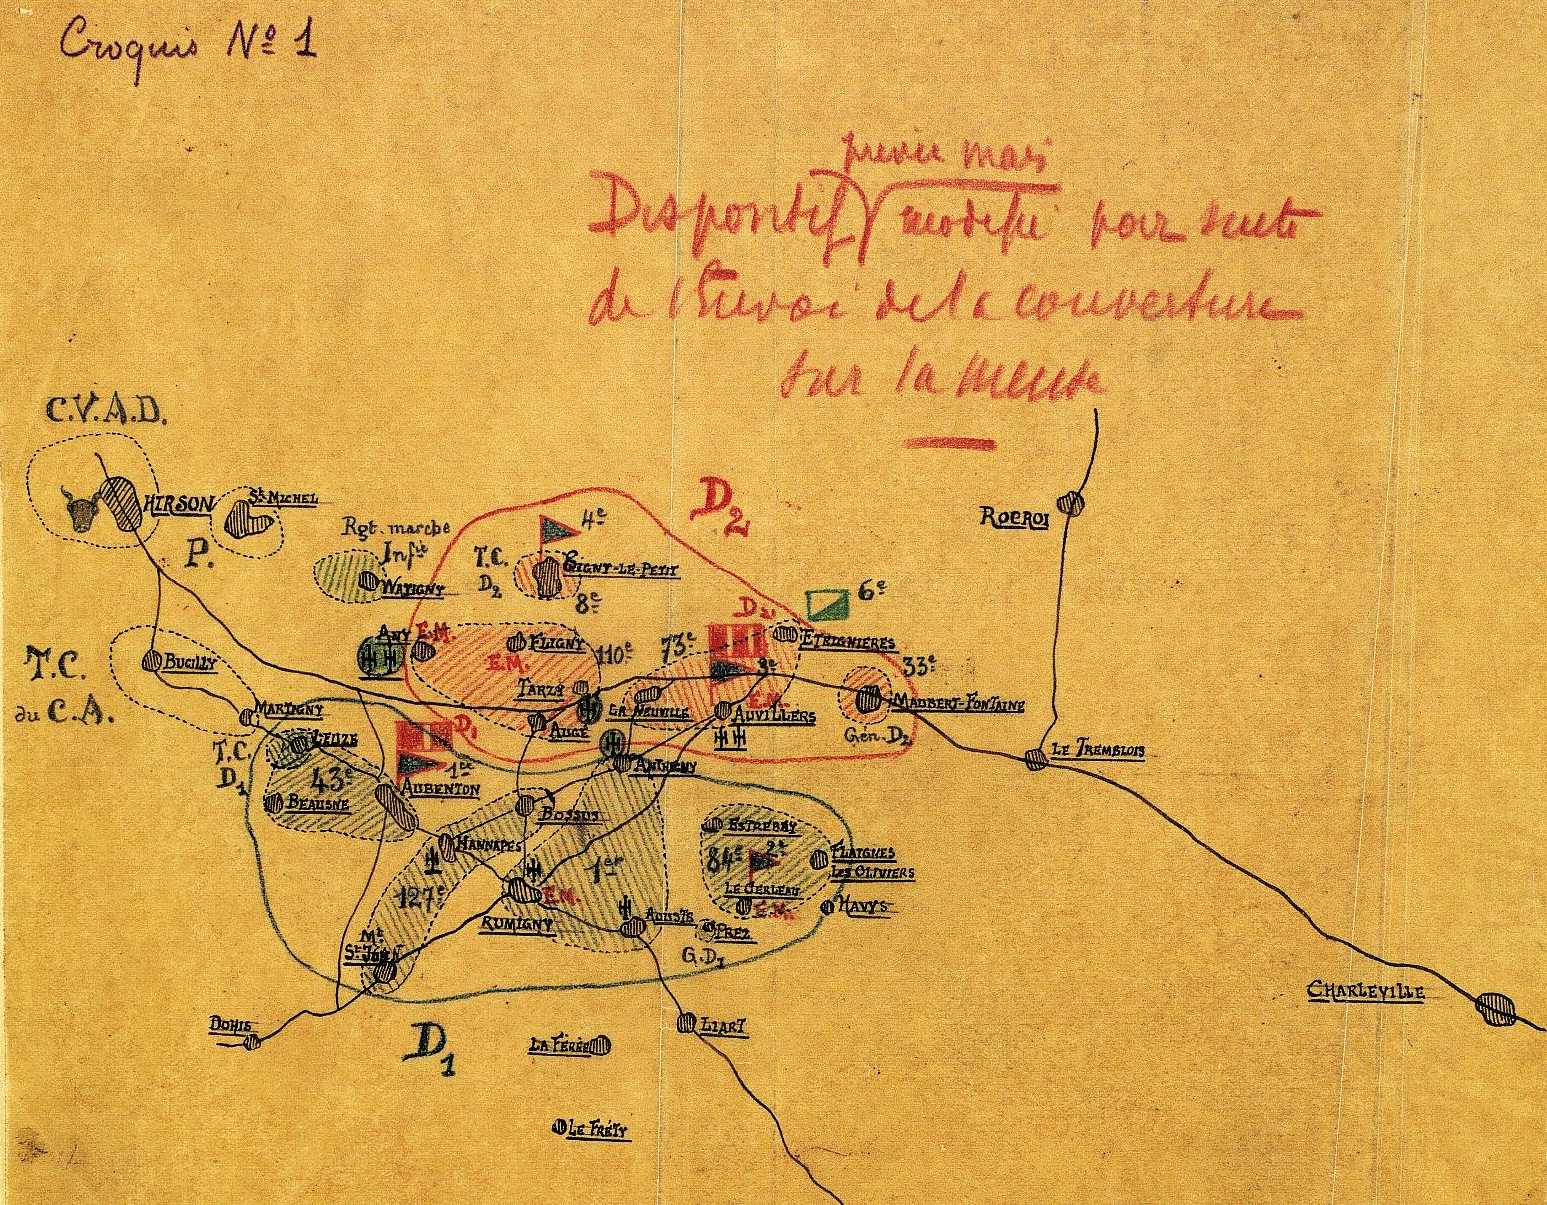 Croquis Nº 1
prévu mais
Dispositif modifié par suite
de l'Envoi de la couverture
sur la meuse
C.V.A.D.
HIRSON
St MICHEL
P.
Rgt. marche
Infie
WATIGNY
T.C.
D2
4e
SIGNY-LE-PETIT
8e
D2
ROCROI
6e
D2
ETEIGNIÈRES
ANY
E.M.
FLIGNY
E.M.
110e
TARZY
AUGE
73e
3e
LA NEUVILLE
E.M.
AUVILLERS
33e
MAUBERT-FONTAINE
Gén. D2
LE TREMBLOIS
T.C.
du C.A.
BUCILLY
MARTIGNY
T.C.
D1
LEUZE
43e
BEAUSNE
D1
1re
AUBENTON
ANTHENY
BOSSUS
HANNAPES
127e
1er
E.M.
RUMIGNY
AOUSTE
Mt
St JEAN
ESTREBAY
84e
2e
FLAIGNES
LES OLIVIERS
LE CERLEAU
E.M.
HAVYS
PREZ
G.D1
CHARLEVILLE
DOHIS
D1
LA FÉRÉE
LIART
LE FRÉTY